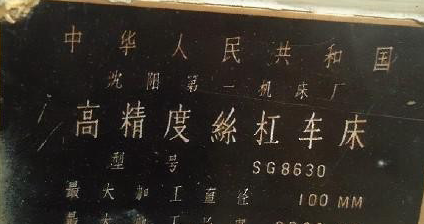 中华人民共和国
沈阳第一机床厂
高精度絲杠车床
型号 SG8630
最大加工直径 100 MM
最大加工